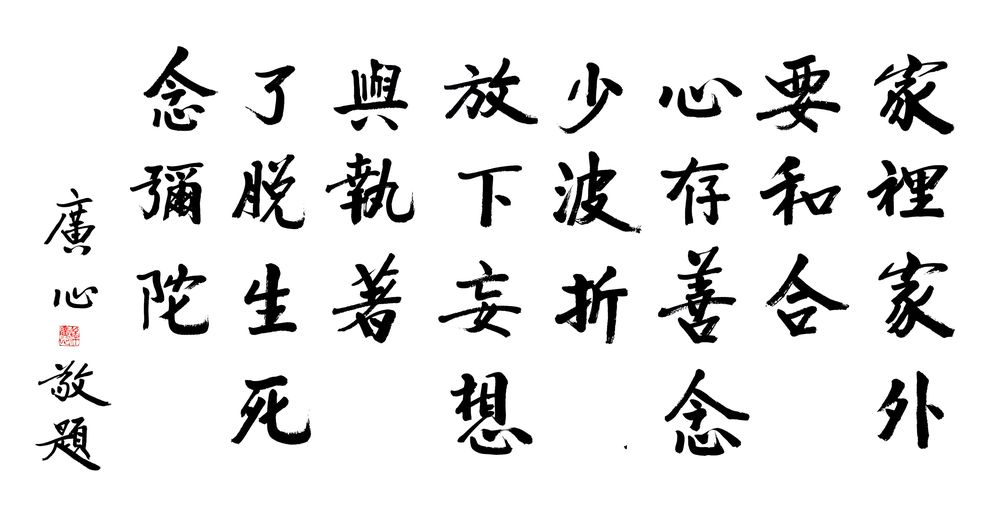 家裡家外
要和合
心存善念
少波折
放下妄想
與執著
了脫生死
念彌陀
廣心敬題